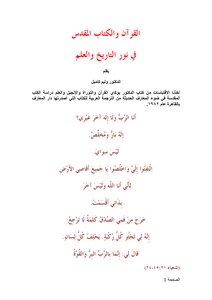 القرآن والكتاب المقدس
في نور التاريخ والعلم
بقلم
الدكتور وليم كامبل
أخذنا الاقتباسات من كتاب الدكتور بوكاي القرآن والتوراة والإنجيل والعلم دراسة الكتب
المقدسة في ضوء المعارف الحديثة من الترجمة العربية للكتاب التي أصدرتها دار المعارف
بالقاهرة عام ١٩٨٢.
أَنَا الرَّبُّ وَلَا إِلَهَ آخَرَ غَيْرِي؟
إِلَهٌ بَارٌّ وَمُخَلِّصٌ.
لَيْسَ سِوَايَ.
اِلْتَفِتُوا إِلَيَّ وَاخْلُصُوا يَا جَمِيعَ أَقَاصِي الأَرْضِ
لأَنِّي أَنَا اللهُ وَلَيْسَ آخَرَ
بِذَاتِي أَقْسَمْتُ،
خَرَجَ مِنْ فَمِي الصِّدْقُ كَلِمَةٌ لَا تَرْجِعُ:
إِنَّهُ لِي تَجْثُو كُلُّ رُكْبَةٍ، يَحْلِفُ كُلُّ لِسَانٍ.
قَالَ لِي: إِنَّمَا بِالرَّبِّ الْبِرُّ وَالْقُوَّةُ
(إشعياء ٤٥: ٢١-٢٤)
الصفحة ١